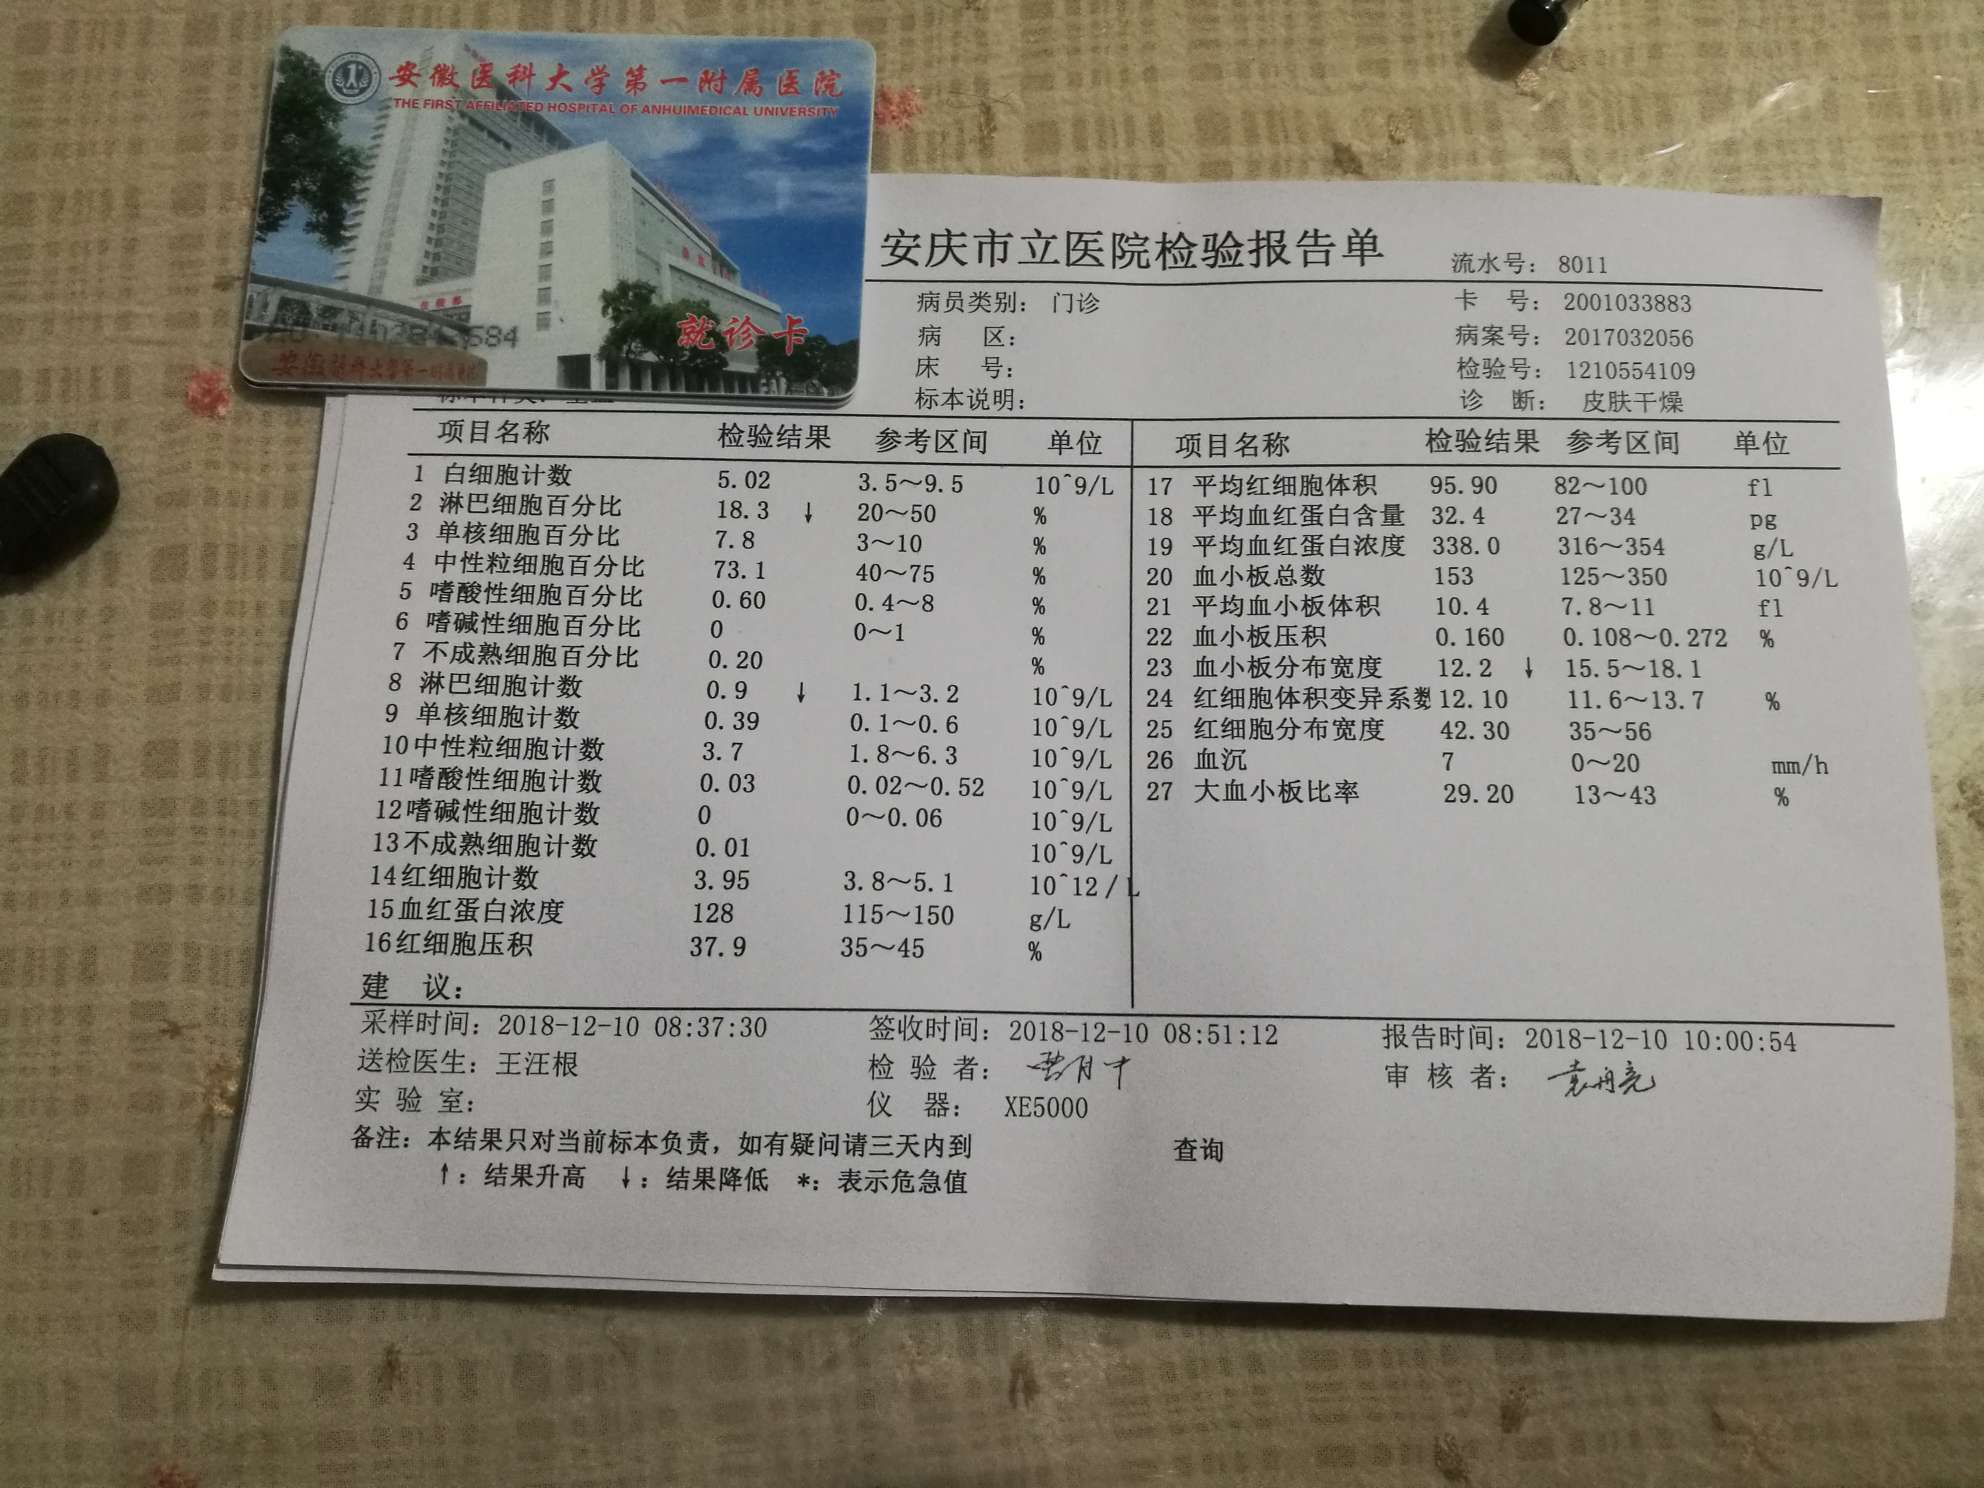 安徽医科大学第一附属医院
THE FIRST AFFILIATED HOSPITAL OF ANHUIMEDICAL UNIVERSITY
就诊卡
安徽医科大学第一附属医院
安庆市立医院检验报告单
流水号： 8011
病员类别： 门诊 卡 号： 2001033883
病 区： 病案号： 2017032056
床 号： 检验号： 1210554109
标本说明： 诊 断： 皮肤干燥
项目名称 检验结果 参考区间 单位 项目名称 检验结果 参考区间 单位
1 白细胞计数 5.02 3.5～9.5 10^9/L 17 平均红细胞体积 95.90 82～100 fl
2 淋巴细胞百分比 18.3 ↓ 20～50 % 18 平均血红蛋白含量 32.4 27～34 pg
3 单核细胞百分比 7.8 3～10 % 19 平均血红蛋白浓度 338.0 316～354 g/L
4 中性粒细胞百分比 73.1 40～75 % 20 血小板总数 153 125～350 10^9/L
5 嗜酸性细胞百分比 0.60 0.4～8 % 21 平均血小板体积 10.4 7.8～11 fl
6 嗜碱性细胞百分比 0 0～1 % 22 血小板压积 0.160 0.108～0.272 %
7 不成熟细胞百分比 0.20 % 23 血小板分布宽度 12.2 ↓ 15.5～18.1
8 淋巴细胞计数 0.9 ↓ 1.1～3.2 10^9/L 24 红细胞体积变异系数 12.10 11.6～13.7 %
9 单核细胞计数 0.39 0.1～0.6 10^9/L 25 红细胞分布宽度 42.30 35～56
10 中性粒细胞计数 3.7 1.8～6.3 10^9/L 26 血沉 7 0～20 mm/h
11 嗜酸性细胞计数 0.03 0.02～0.52 10^9/L 27 大血小板比率 29.20 13～43 %
12 嗜碱性细胞计数 0 0～0.06 10^9/L
13 不成熟细胞计数 0.01 10^9/L
14 红细胞计数 3.95 3.8～5.1 10^12/L
15 血红蛋白浓度 128 115～150 g/L
16 红细胞压积 37.9 35～45 %
建 议：
采样时间：2018-12-10 08:37:30 签收时间：2018-12-10 08:51:12 报告时间：2018-12-10 10:00:54
送检医生：王汪根 检 验 者： 审 核 者：
实 验 室： 仪 器： XE5000
备注：本结果只对当前标本负责，如有疑问请三天内到 查询
↑：结果升高 ↓：结果降低 *：表示危急值